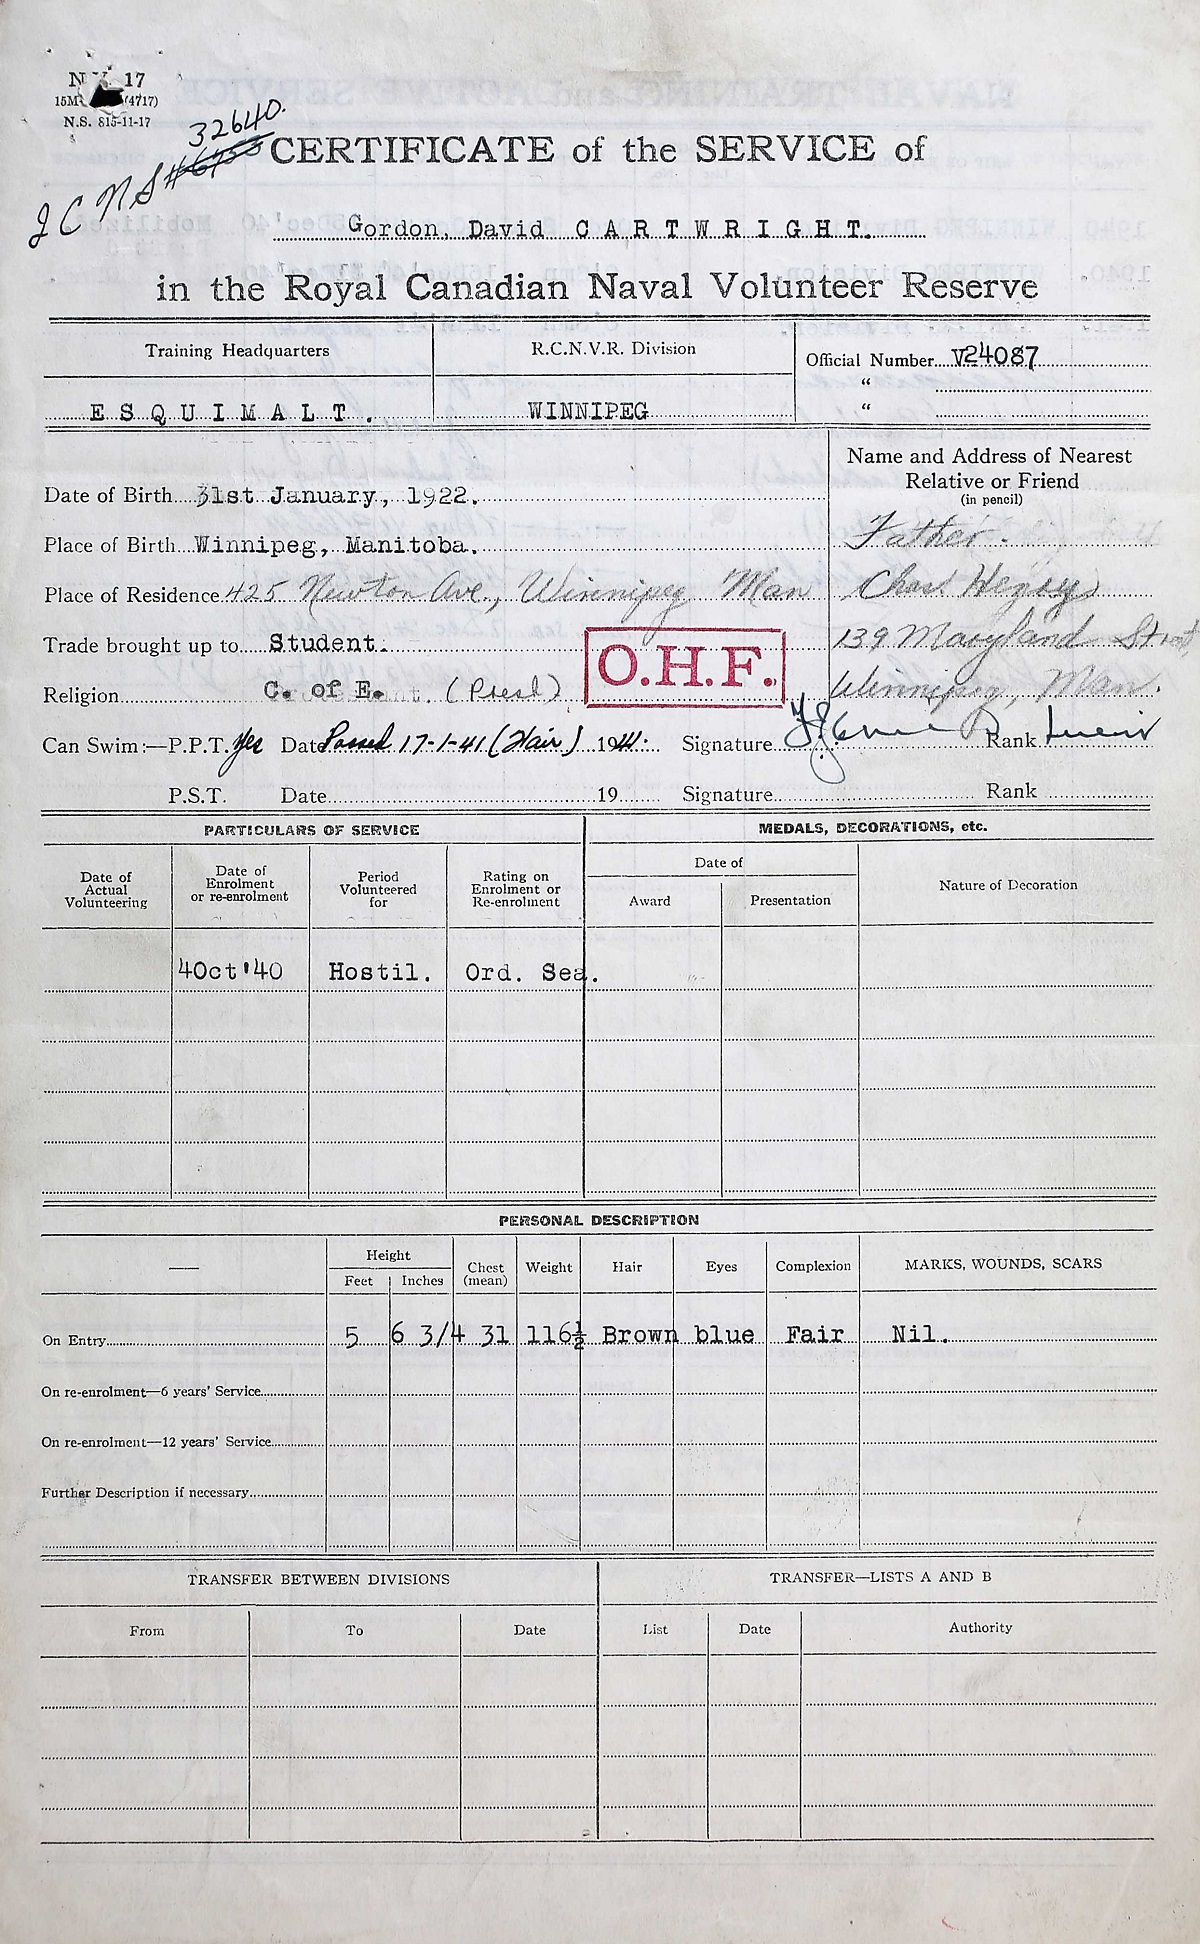 N.V. 17
15M (4717)
N.S. 815-11-17
32640.
J C N S #
CERTIFICATE of the SERVICE of
Gordon, David CARTWRIGHT.
in the Royal Canadian Naval Volunteer Reserve
Training Headquarters
R.C.N.V.R. Division
Official Number V24087
"
ESQUIMALT. WINNIPEG "
Name and Address of Nearest
Relative or Friend
(in pencil)
Date of Birth 31st January, 1922.
Father.
Place of Birth Winnipeg, Manitoba.
Place of Residence 425 Newton Ave., Winnipeg Man
Chas Henry
Trade brought up to Student.
139 Maryland Street,
O.H.F.
Religion C. of E. (Presb)
Winnipeg, Man.
Can Swim:—P.P.T. Yes Date Passed 17-1-41 (Fair) 1941. Signature Rank
P.S.T. Date 19 Signature Rank
PARTICULARS OF SERVICE
MEDALS, DECORATIONS, etc.
Date of Actual Volunteering
Date of Enrolment or re-enrolment
Period Volunteered for
Rating on Enrolment or Re-enrolment
Date of
Award
Presentation
Nature of Decoration
4Oct'40 Hostil. Ord. Sea.
PERSONAL DESCRIPTION
—
Height
Feet Inches
Chest (mean)
Weight
Hair
Eyes
Complexion
MARKS, WOUNDS, SCARS
On Entry 5 6 3/4 31 116½ Brown blue Fair Nil.
On re-enrolment—6 years' Service
On re-enrolment—12 years' Service
Further Description if necessary
TRANSFER BETWEEN DIVISIONS
TRANSFER—LISTS A AND B
From To Date List Date Authority